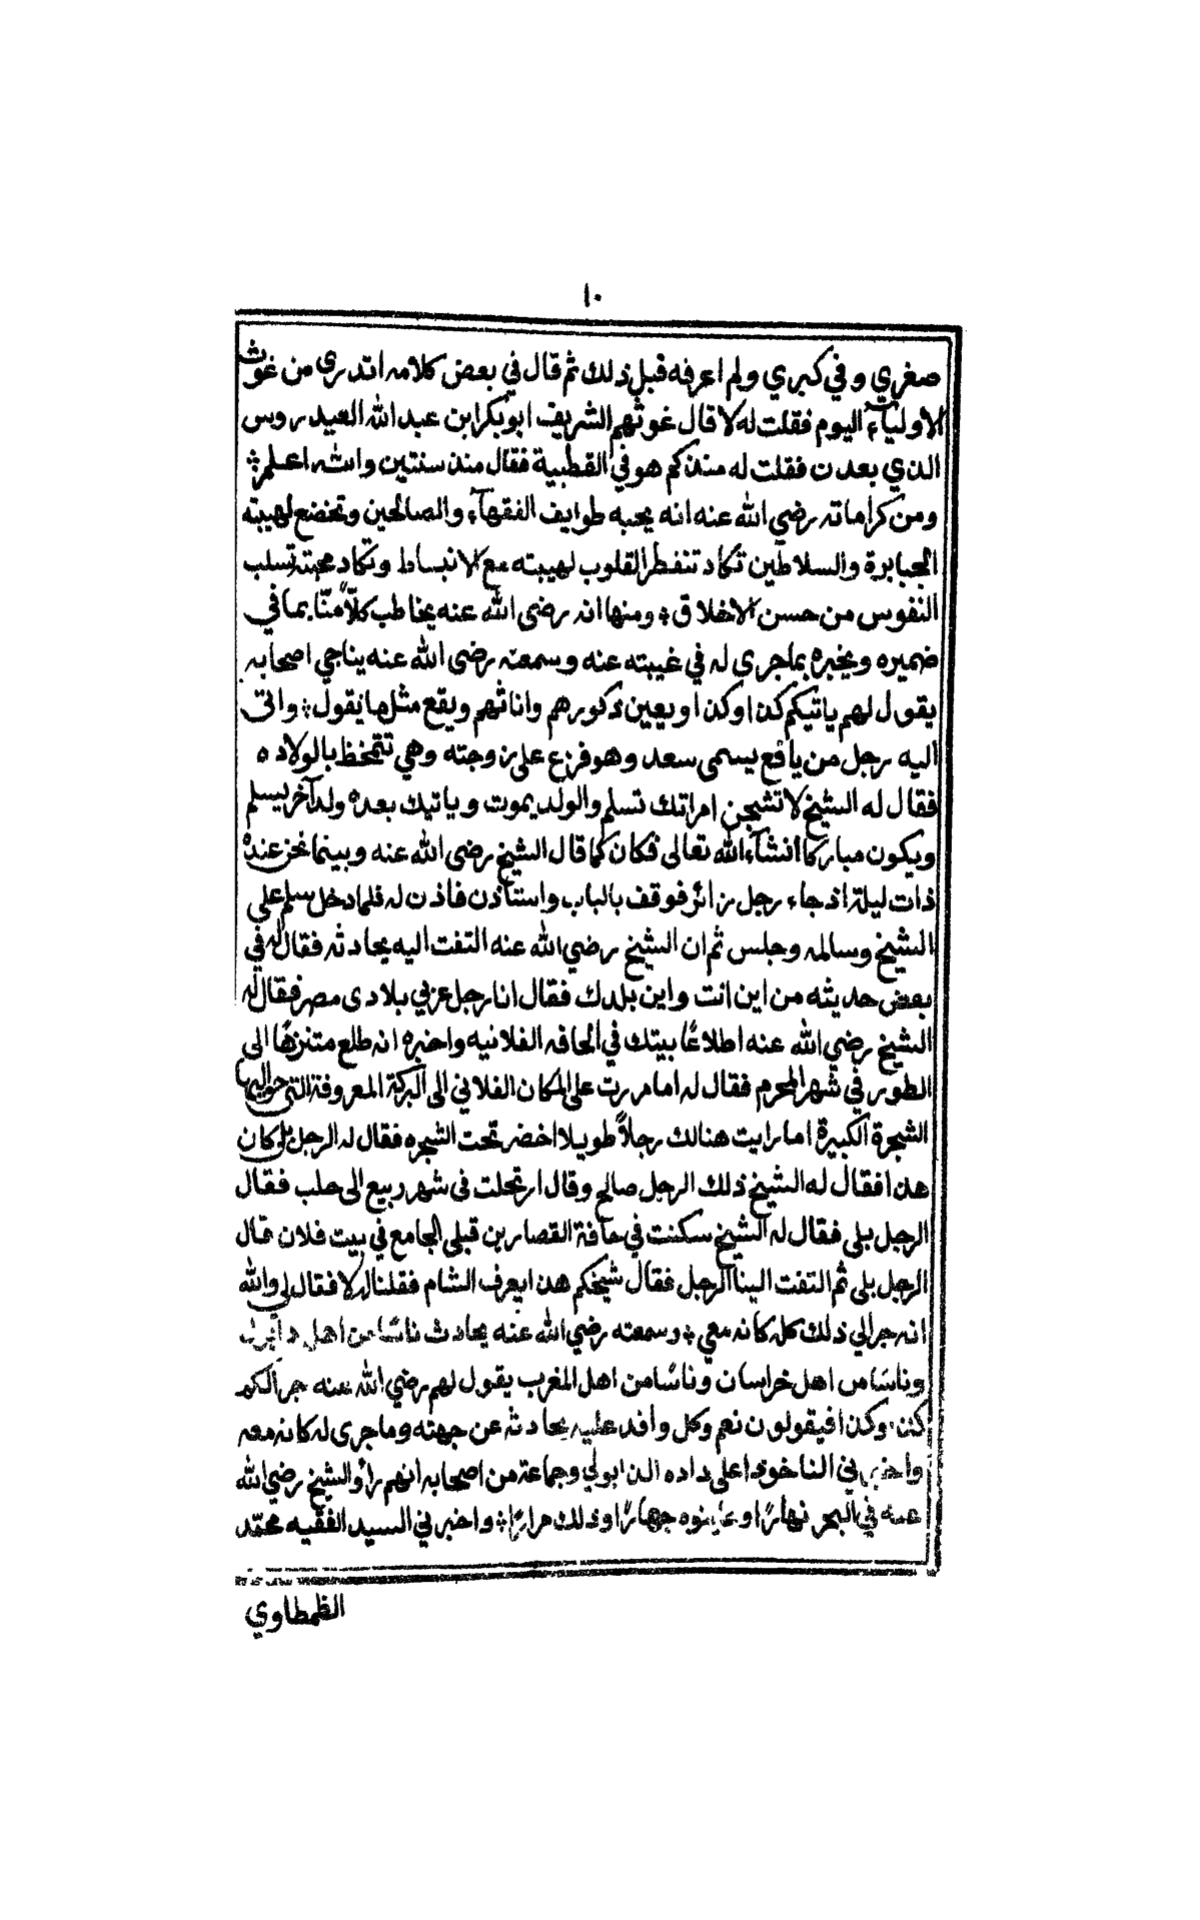 ١٠
صغري وفي كبري ولم اعرفه قبل ذلك ثم قال في بعض كلامه اتدري من غوث
الاولياء اليوم فقلت له لا قال غوثهم الشريف ابوبكر ابن عبد الله العيدروس
الذي بعدن فقلت له منذ كم هو في القطبية فقال منذ سنتين والله اعلم؛
ومن كراماته رضي الله عنه انه يحبه طوايف الفقهآء والصالحين وتخضع لهيبته
الجبابرة والسلاطين تكاد تنفطر القلوب لهيبته مع الانبساط وتكاد محبته تسلب
النفوس من حسن الاخلاق؛ ومنها انه رضي الله عنه يخاطب كلاً منّا بما في
ضميره ويخبره بما جرى له في غيبته عنه وسمعته رضي الله عنه يناجي اصحابه
يقول لهم ياتيكم كذا وكذا ويعين ذكورهم واناثهم ويقع مثل ما يقول؛ واتى
اليه رجل من يافع يسمى سعد وهو فزع على زوجته وهي تتمخظ بالولاده
فقال له الشيخ لا تشجن امراتك تسلم والولد يموت وياتيك بعده ولد آخر يسلم
ويكون مباركا انشآء الله تعالى فكان كما قال الشيخ رضي الله عنه وبينما نحن عنده
ذات ليلة اذ جاء رجل زائر فوقف بالباب واستاذن فاذن له فلما دخل سلم على
الشيخ وسالمه وجلس ثم ان الشيخ رضي الله عنه التفت اليه يحادثه فقال له في
بعض حديثه من اين انت واين بلدك فقال انا رجل عربي بلادى مصر فقال له
الشيخ رضي الله عنه اطلاعًا بيتك في الحافه الفلانيه واخبره انه طلع متنزهًا الى
الطور في شهر المحرم فقال له اما مررت على المكان الفلاني الى البركة المعروفة التى حواليها
الشجرة الكبيرة اما رايت هنالك رجلاً طويلا اخضر تحت الشجره فقال له الرجل بلى كان
هذا فقال له الشيخ ذلك الرجل صالح وقال ارتحلت في شهر ربيع الى حلب فقال
الرجل بلى فقال له الشيخ سكنت في حافة القصارين قبلي الجامع في بيت فلان قال
الرجل بلى ثم التفت الينا الرجل فقال شيخكم هذا يعرف الشام فقلنا له لا فقال لي والله
انه جرا لي ذلك كله كانه معي؛ وسمعته رضي الله عنه يحادث ناسًا من اهل
وناسًا من اهل خراسان وناسًا من اهل المغرب يقول لهم رضي الله عنه جرا لكم
كذا وكذا فيقولون نعم وكل وافد عليه يحادثه عن جهته وما جرى له كانه معه
واخبرني الناخوذا على داده الدابولي وجماعة من اصحابه انهم راوا الشيخ رضي الله
عنه في البحر نهارًا وعاينوه جهارًا وذلك مرارًا؛ واخبرني السيد الفقيه محمّد
الظمطاوي